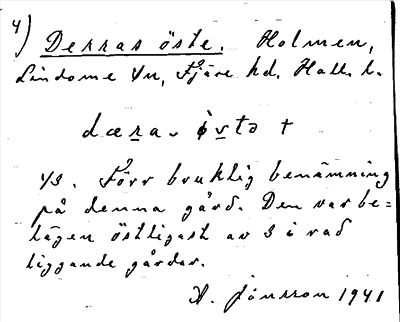 4) Derras öste. Holmen,
Lindome sn, Fjäre hd. Hall. l.
dæra. östə +
1/3. Förr bruklig benämning
på denna gård. Den var be=
lägen östligast av 3 i rad
liggande gårdar.
A. Jönsson 1941